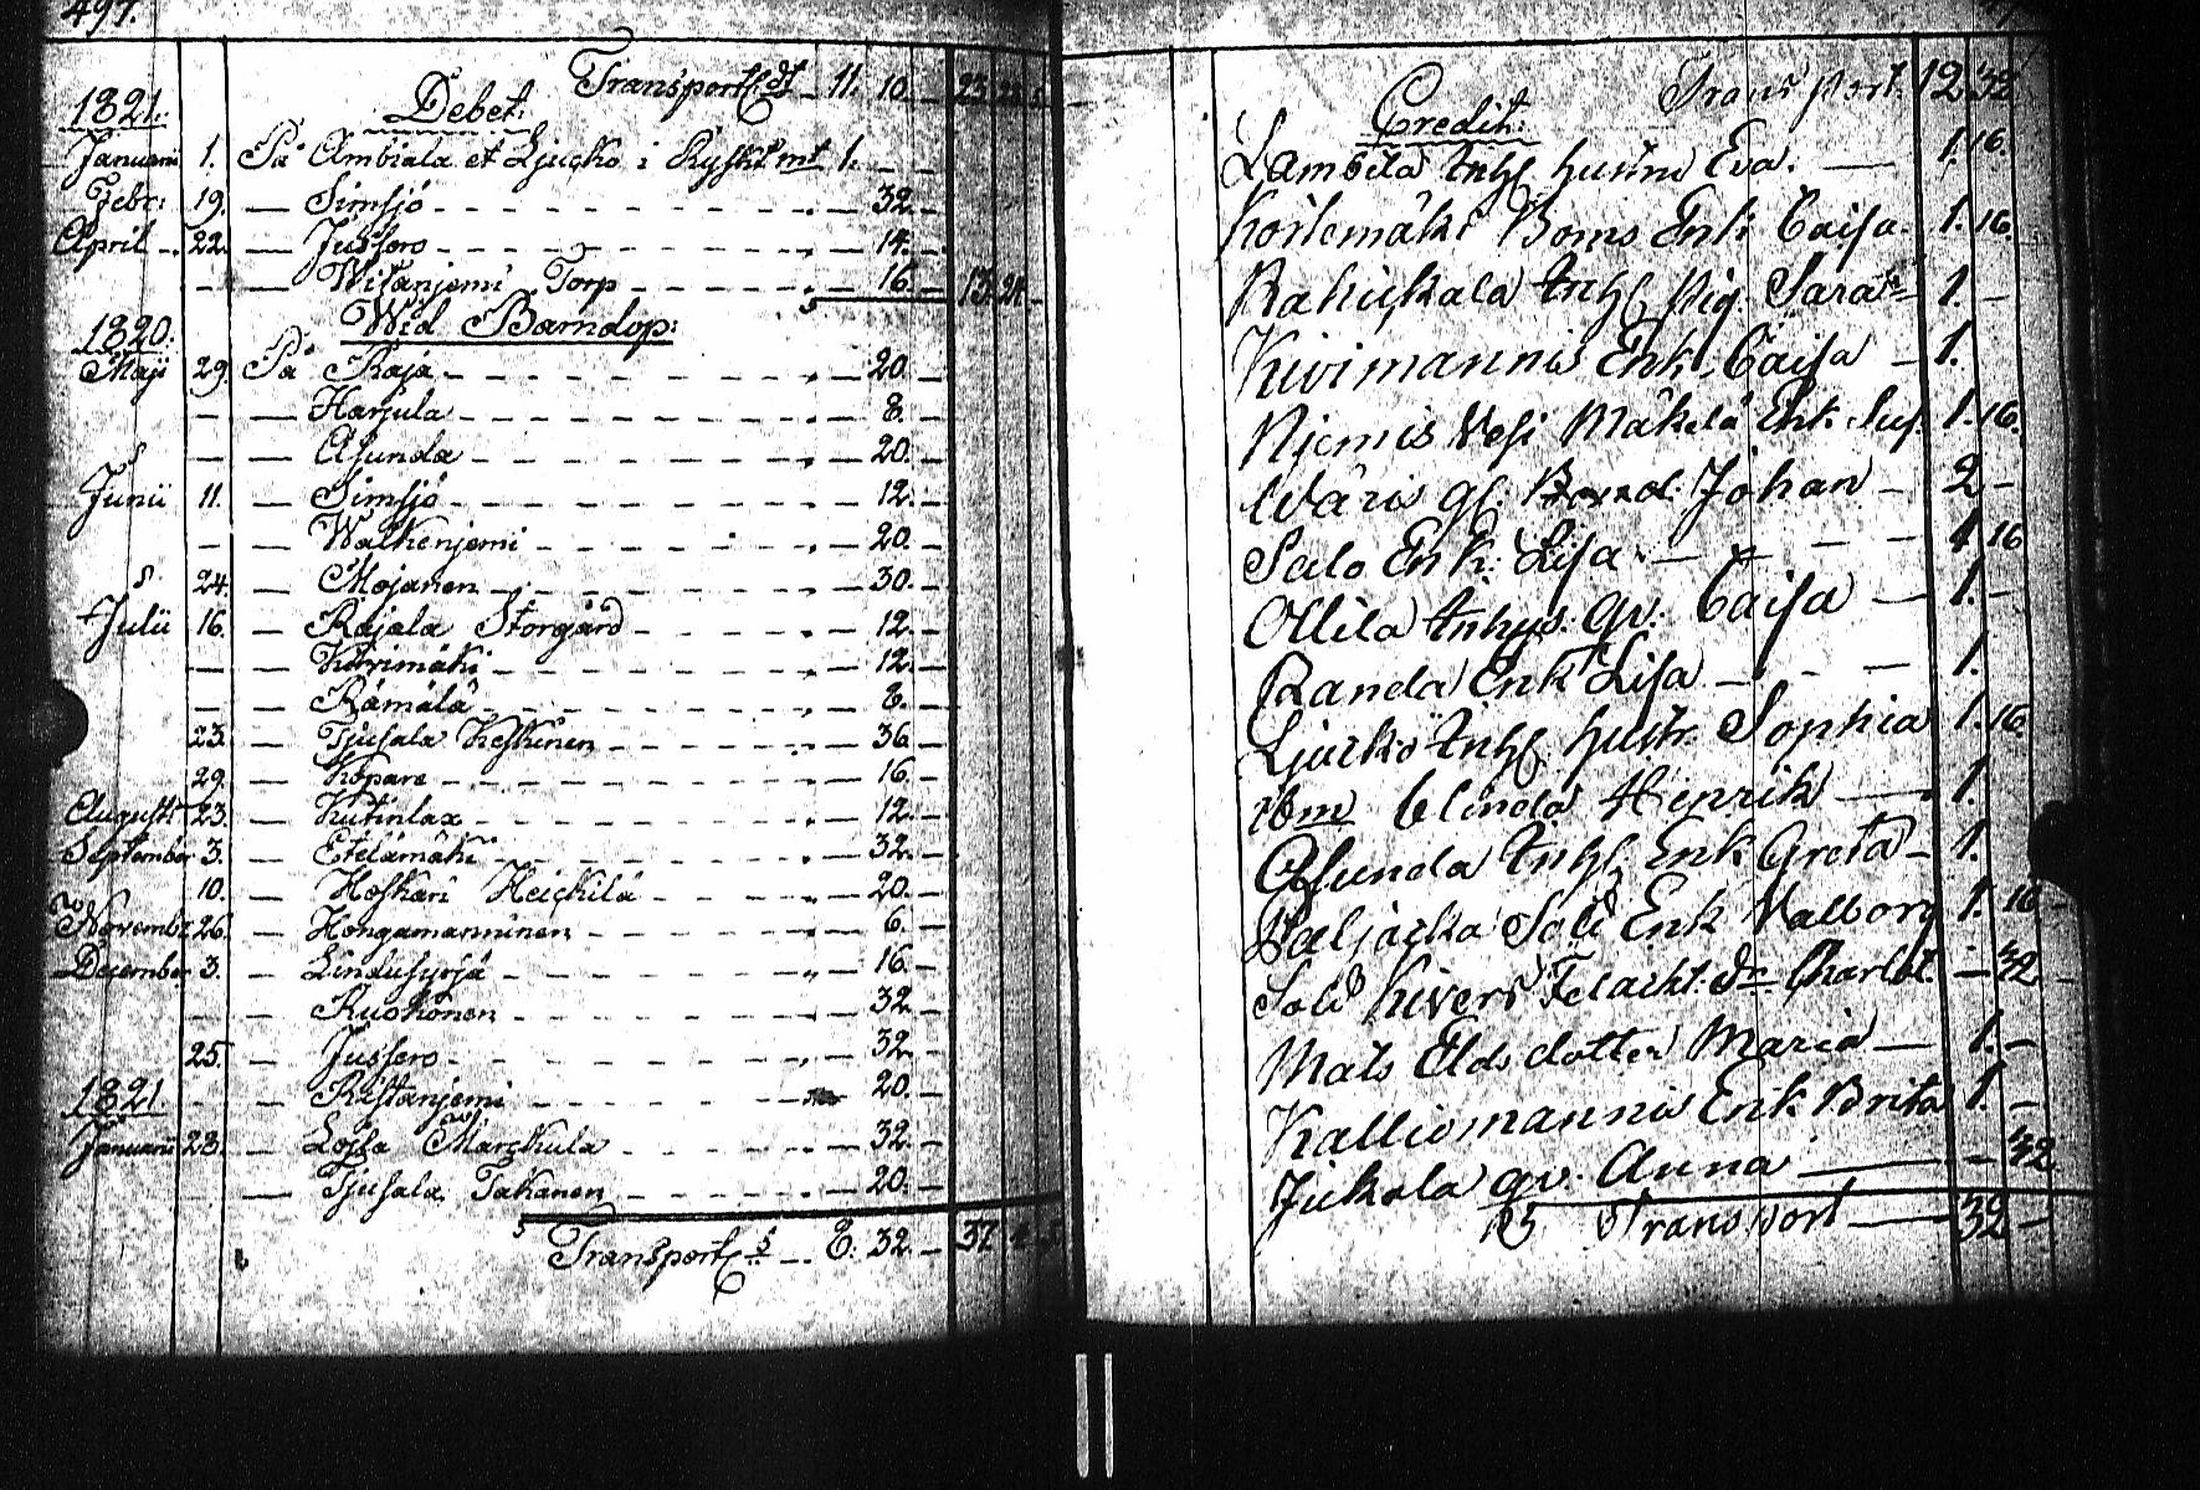 497.
Transport dt 11. 10. 23
1821. Debet.
Januarii 1. På Ambiala et Ljucko i Kyskt mt 1. - -
Febr: 19. — Simsjö - - 32. -
April - 22. — Jussers - - 14. -
- - — Witanjemi Torp - - 16. - 13. 24 -
Wid Barndop:
1820:
Maji 29. På Raja - - 20. -
- - — Harjula - - 8. -
- - — Asunda - - 20. -
Junii 11. — Simsjö - - 12. -
- - — Walkenjemi - - 20. -
24. — Mojanen - - 30. -
Julii 16. — Rajala Storgård - - 12. -
- - — Korrimäki - - 12. -
- - — Rämälä - - 8. -
23. — Tjusala Keskinen - - 36. -
29. — Kopare - - 16. -
Augusti 23. — Kutinlax - - 12. -
September 3. — Etelämäki - - 32. -
10. — Hoskari Heickilä - - 20. -
Novembr 26. — Hongamanninen - - 6. -
December 3. — Lindusyrjä - - 16. -
- - — Ruokonen - - 32. -
25. — Jussers - - 32. -
- - — Ristanjemi - - 20. -
1821
Januarii 28. — Lossa Marckula - - 32. -
— Tjusala Takanen - - 20. -
Transport 8. 32. - 37
Transport. 12 32
Credit:
Lambila Inhs hustru Eva. — 1. 16.
Korkemäki Boms Enk Caisa. 1. 16.
Rahickala Inhs pig. Sara 1. -
Kivimannis Enk. Caisa - 1.
Njemis Vesi Mäkelä Enk. Sus. 1. 16.
Wäris gl. Bond. Johan - 2 -
Salo Enk. Lisa - - - 1 16
Ollila Inhys. qv. Caisa — 1. -
Randa Enk Lisa - - — 1.
Ljucko Inhs. hustr. Sophia 1. 16.
ibm blinda Henrik — 1.
Asunda Inhs. Enk Greta - 1.
Sold Enk Valborg 1. 16 -
Sold Kivers Charlot. — 32 -
Mats Elds dotter Maria — 1. -
Kalliomannis Enk Brita 1. -
Jukola qv. Anna — - 32
Transport — 39 -